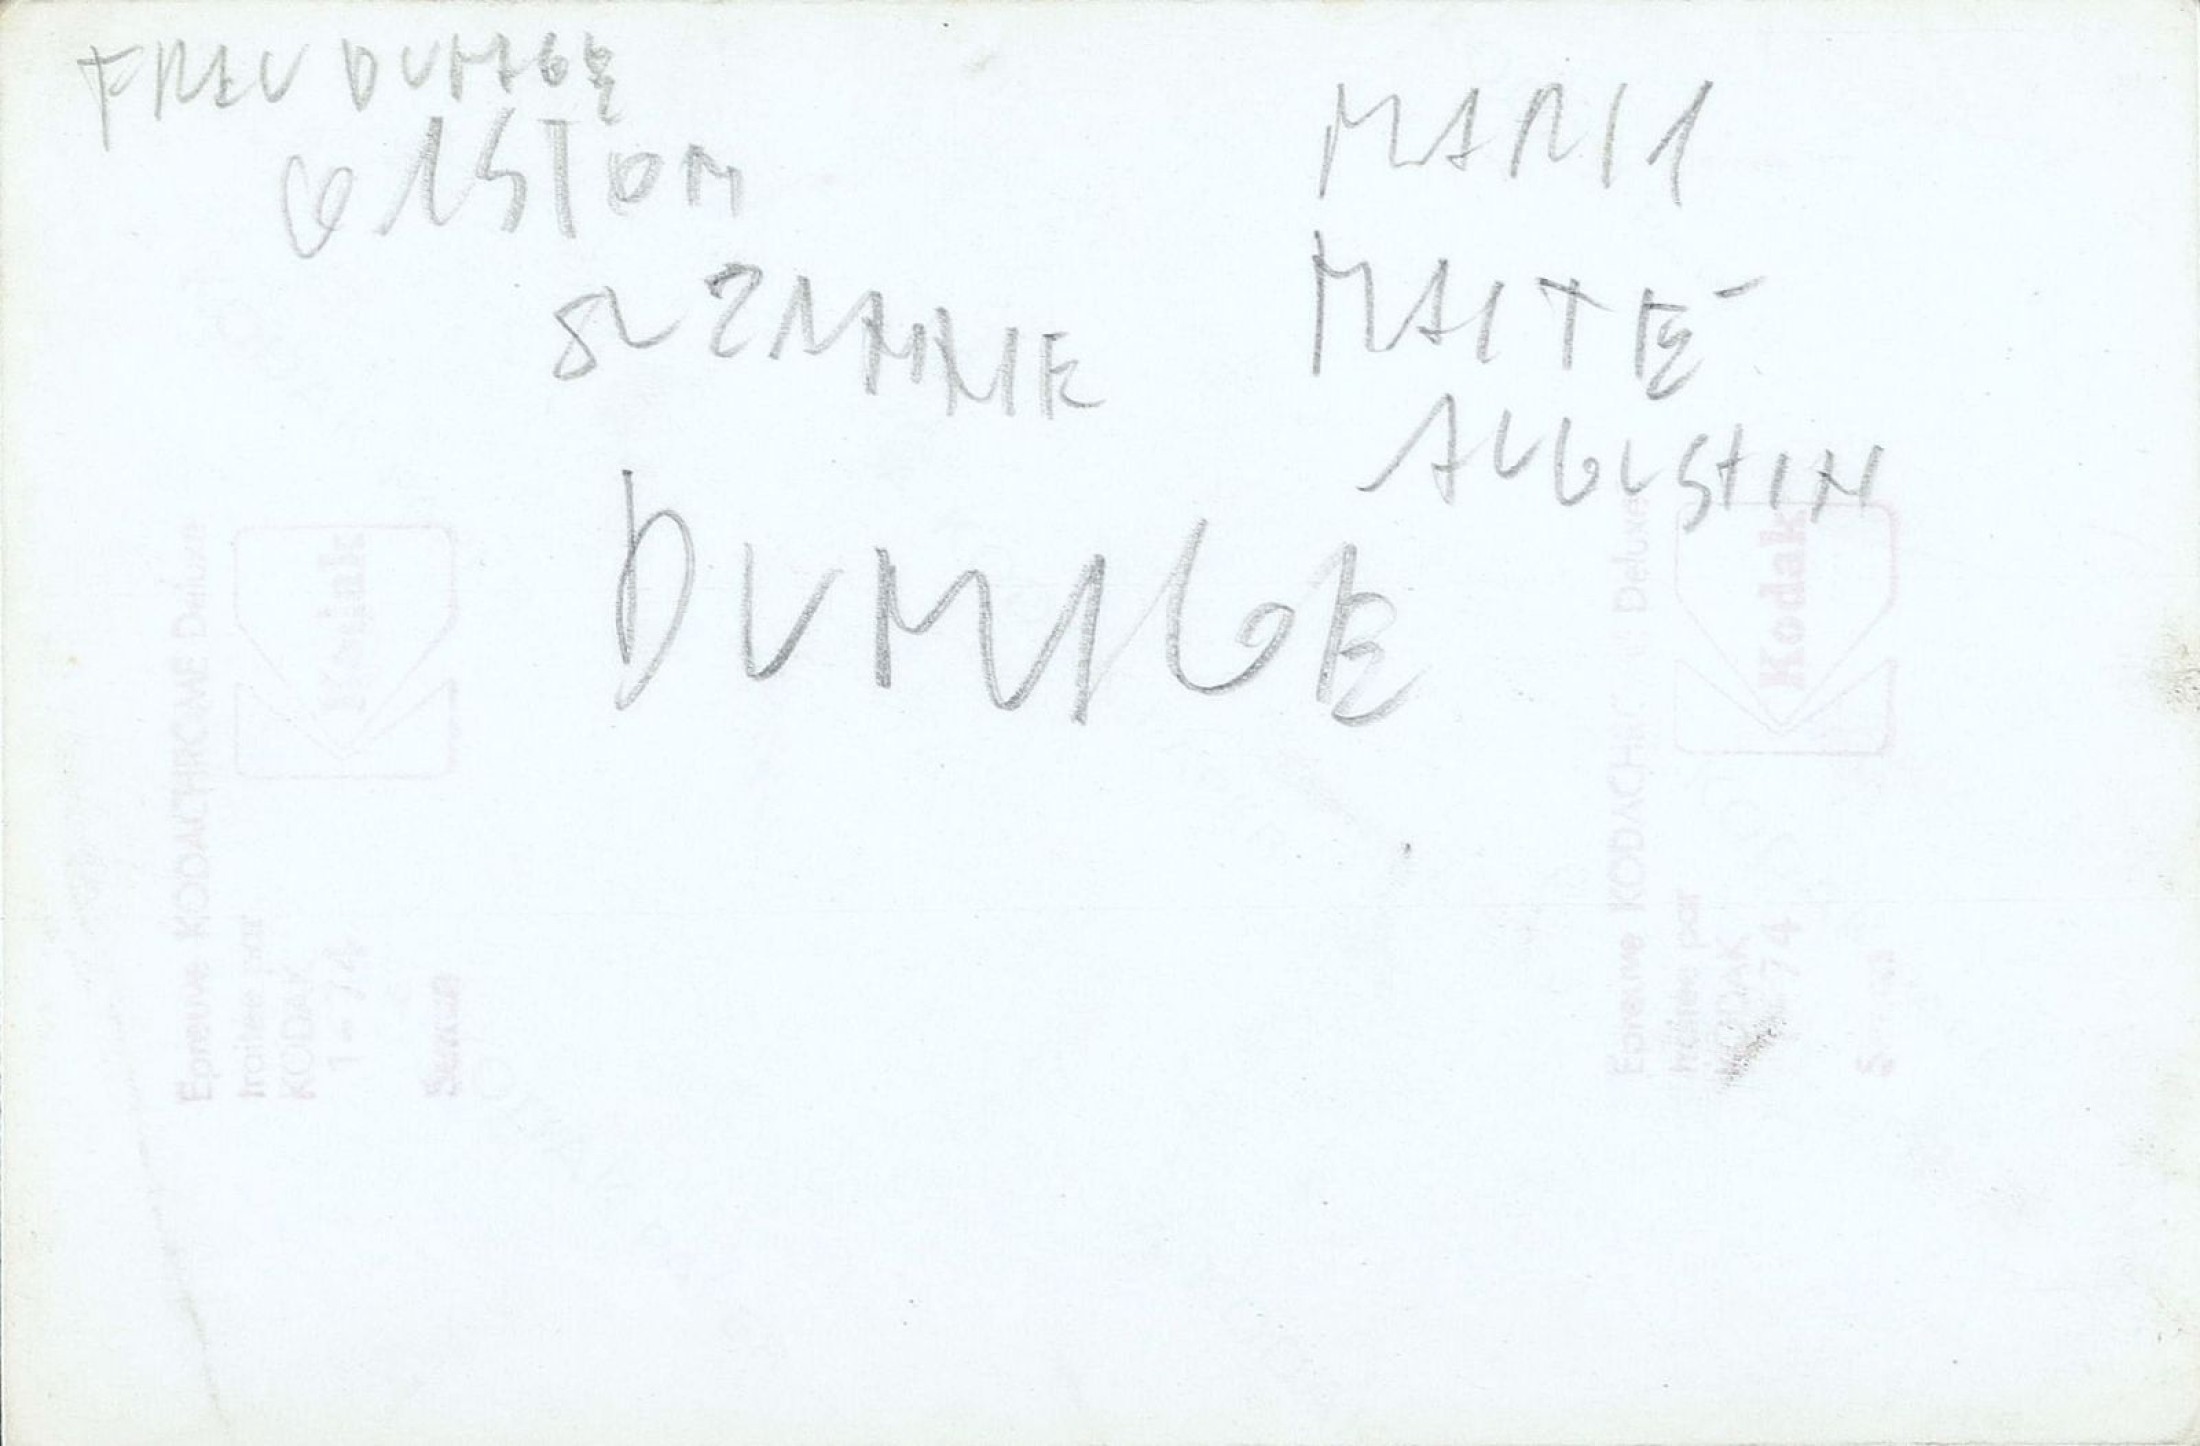 DUMAGE
GASTON
SUZANNE
DUMAGE
MARIA
MAITÉ
AUGUSTIN
Epreuve KODACHROME Deluxe
traitée par
KODAK
1-74
Kodak
Epreuve KODACHROME Deluxe
traitée par
KODAK
74
Kodak